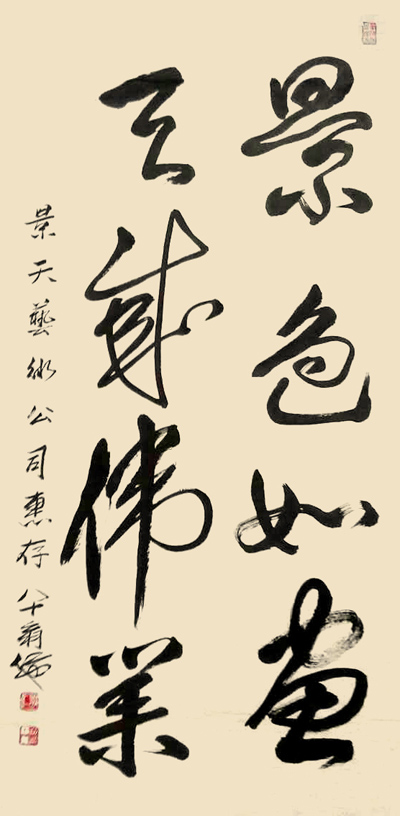 景色如畫
天成偉業
景天藝術公司惠存 八十翁